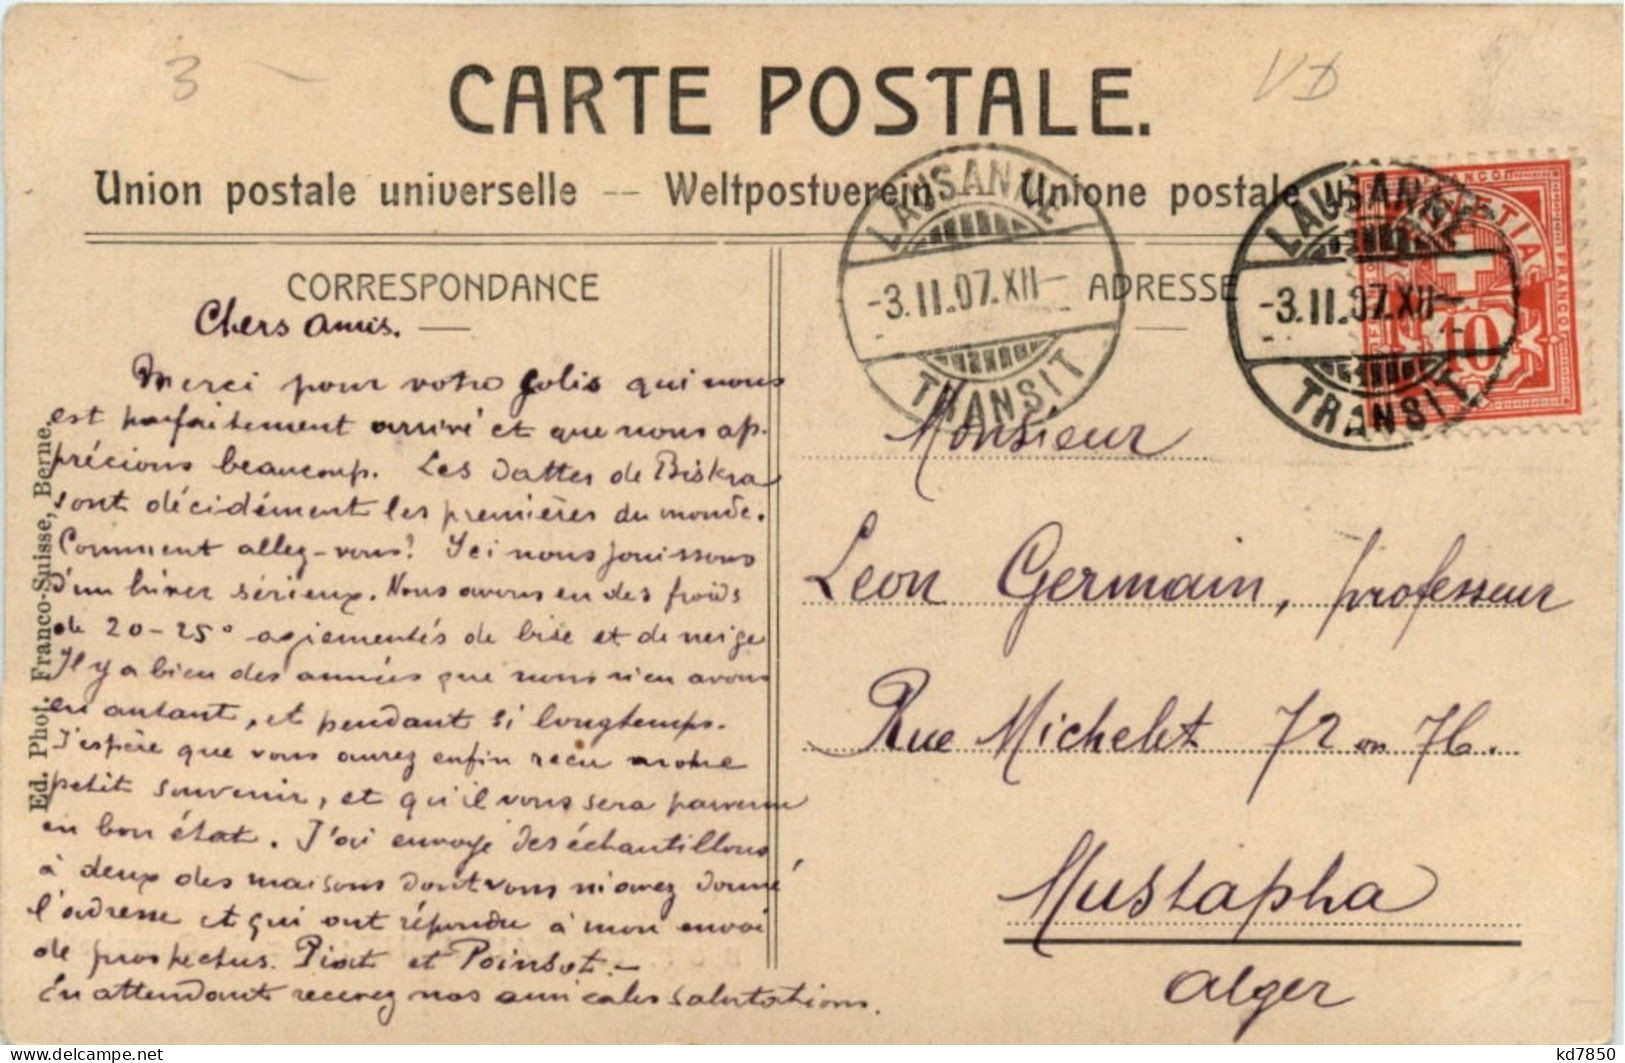 3
VD
CARTE POSTALE.
Union postale universelle -- Weltpostverein Unione postale u
LAUSANNE
-3.II.07.XII-
TRANSIT
LAUSANNE
-3.II.07.XII-
TRANSIT
FRANCO
HELVETIA
FRANCO
10
CORRESPONDANCE
ADRESSE
Chers amis.
Merci pour votre colis qui nous
est parfaitement arrivé et que nous ap-
précions beaucoup. Les dattes de Biskra
sont décidément les premières du monde.
Comment allez-vous? Ici nous jouissons
d'un hiver sérieux. Nous avons eu des froids
de 20-25° agrémentés de bise et de neige
Il y a bien des années que nous n'en avons
eu autant, et pendant si longtemps.
J'espère que vous aurez enfin reçu notre
petit souvenir, et qu'il vous sera parvenu
en bon état. J'ai envoyé des échantillons
à deux des maisons dont vous m'avez donné
l'adresse et qui ont répondu à mon envoi
de prospectus. Piat et Poinsot.-
En attendant recevez nos amicales salutations.
Monsieur
Leon Germain, professeur
Rue Michelet 72 ou 76.
Mustapha
Alger
Ed. Phot. Franco-Suisse, Berne.
delcampe.net
kd7850